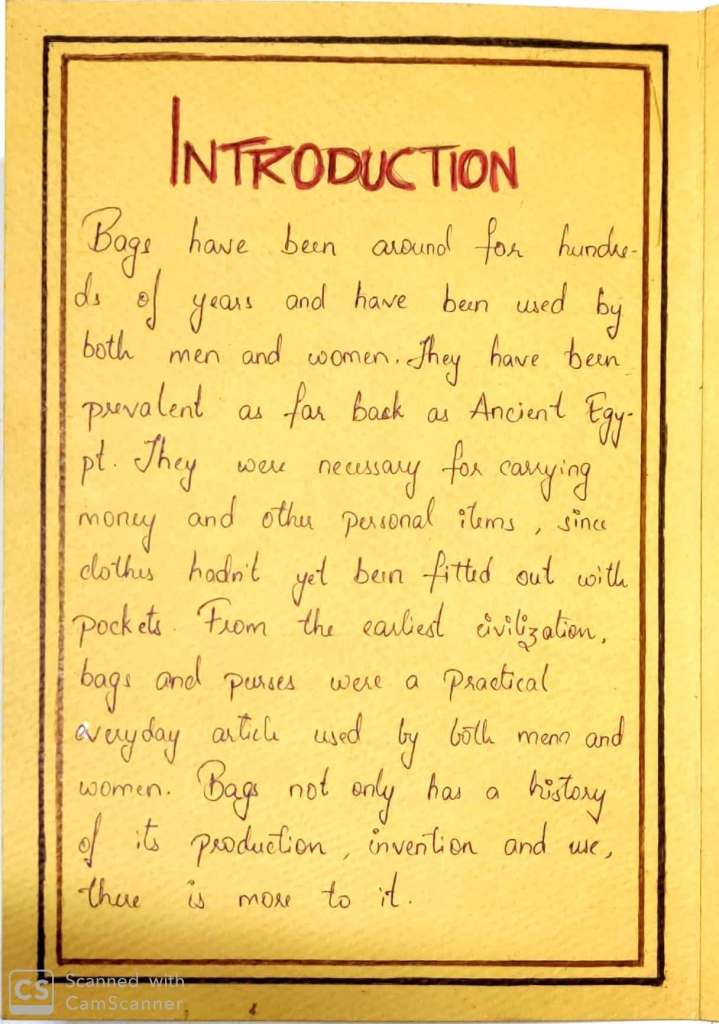 INTRODUCTION
Bags have been around for hundre-
ds of years and have been used by
both men and women. They have been
prevalent as far back as Ancient Egy-
pt. They were necessary for carrying
money and other personal items, since
clothes hadn't yet been fitted out with
pockets. From the earliest civilization,
bags and purses were a practical
everyday article used by both men and
women. Bags not only has a history
of its production, invention and use,
there is more to it.
CS Scanned with
CamScanner